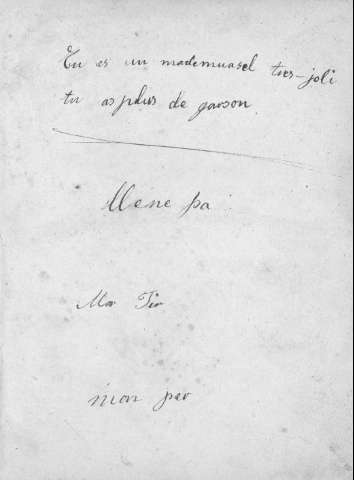 Tu es un mademuasel tres-joli
tu as plus de garson
Mene pa
Mon Tir
mon per